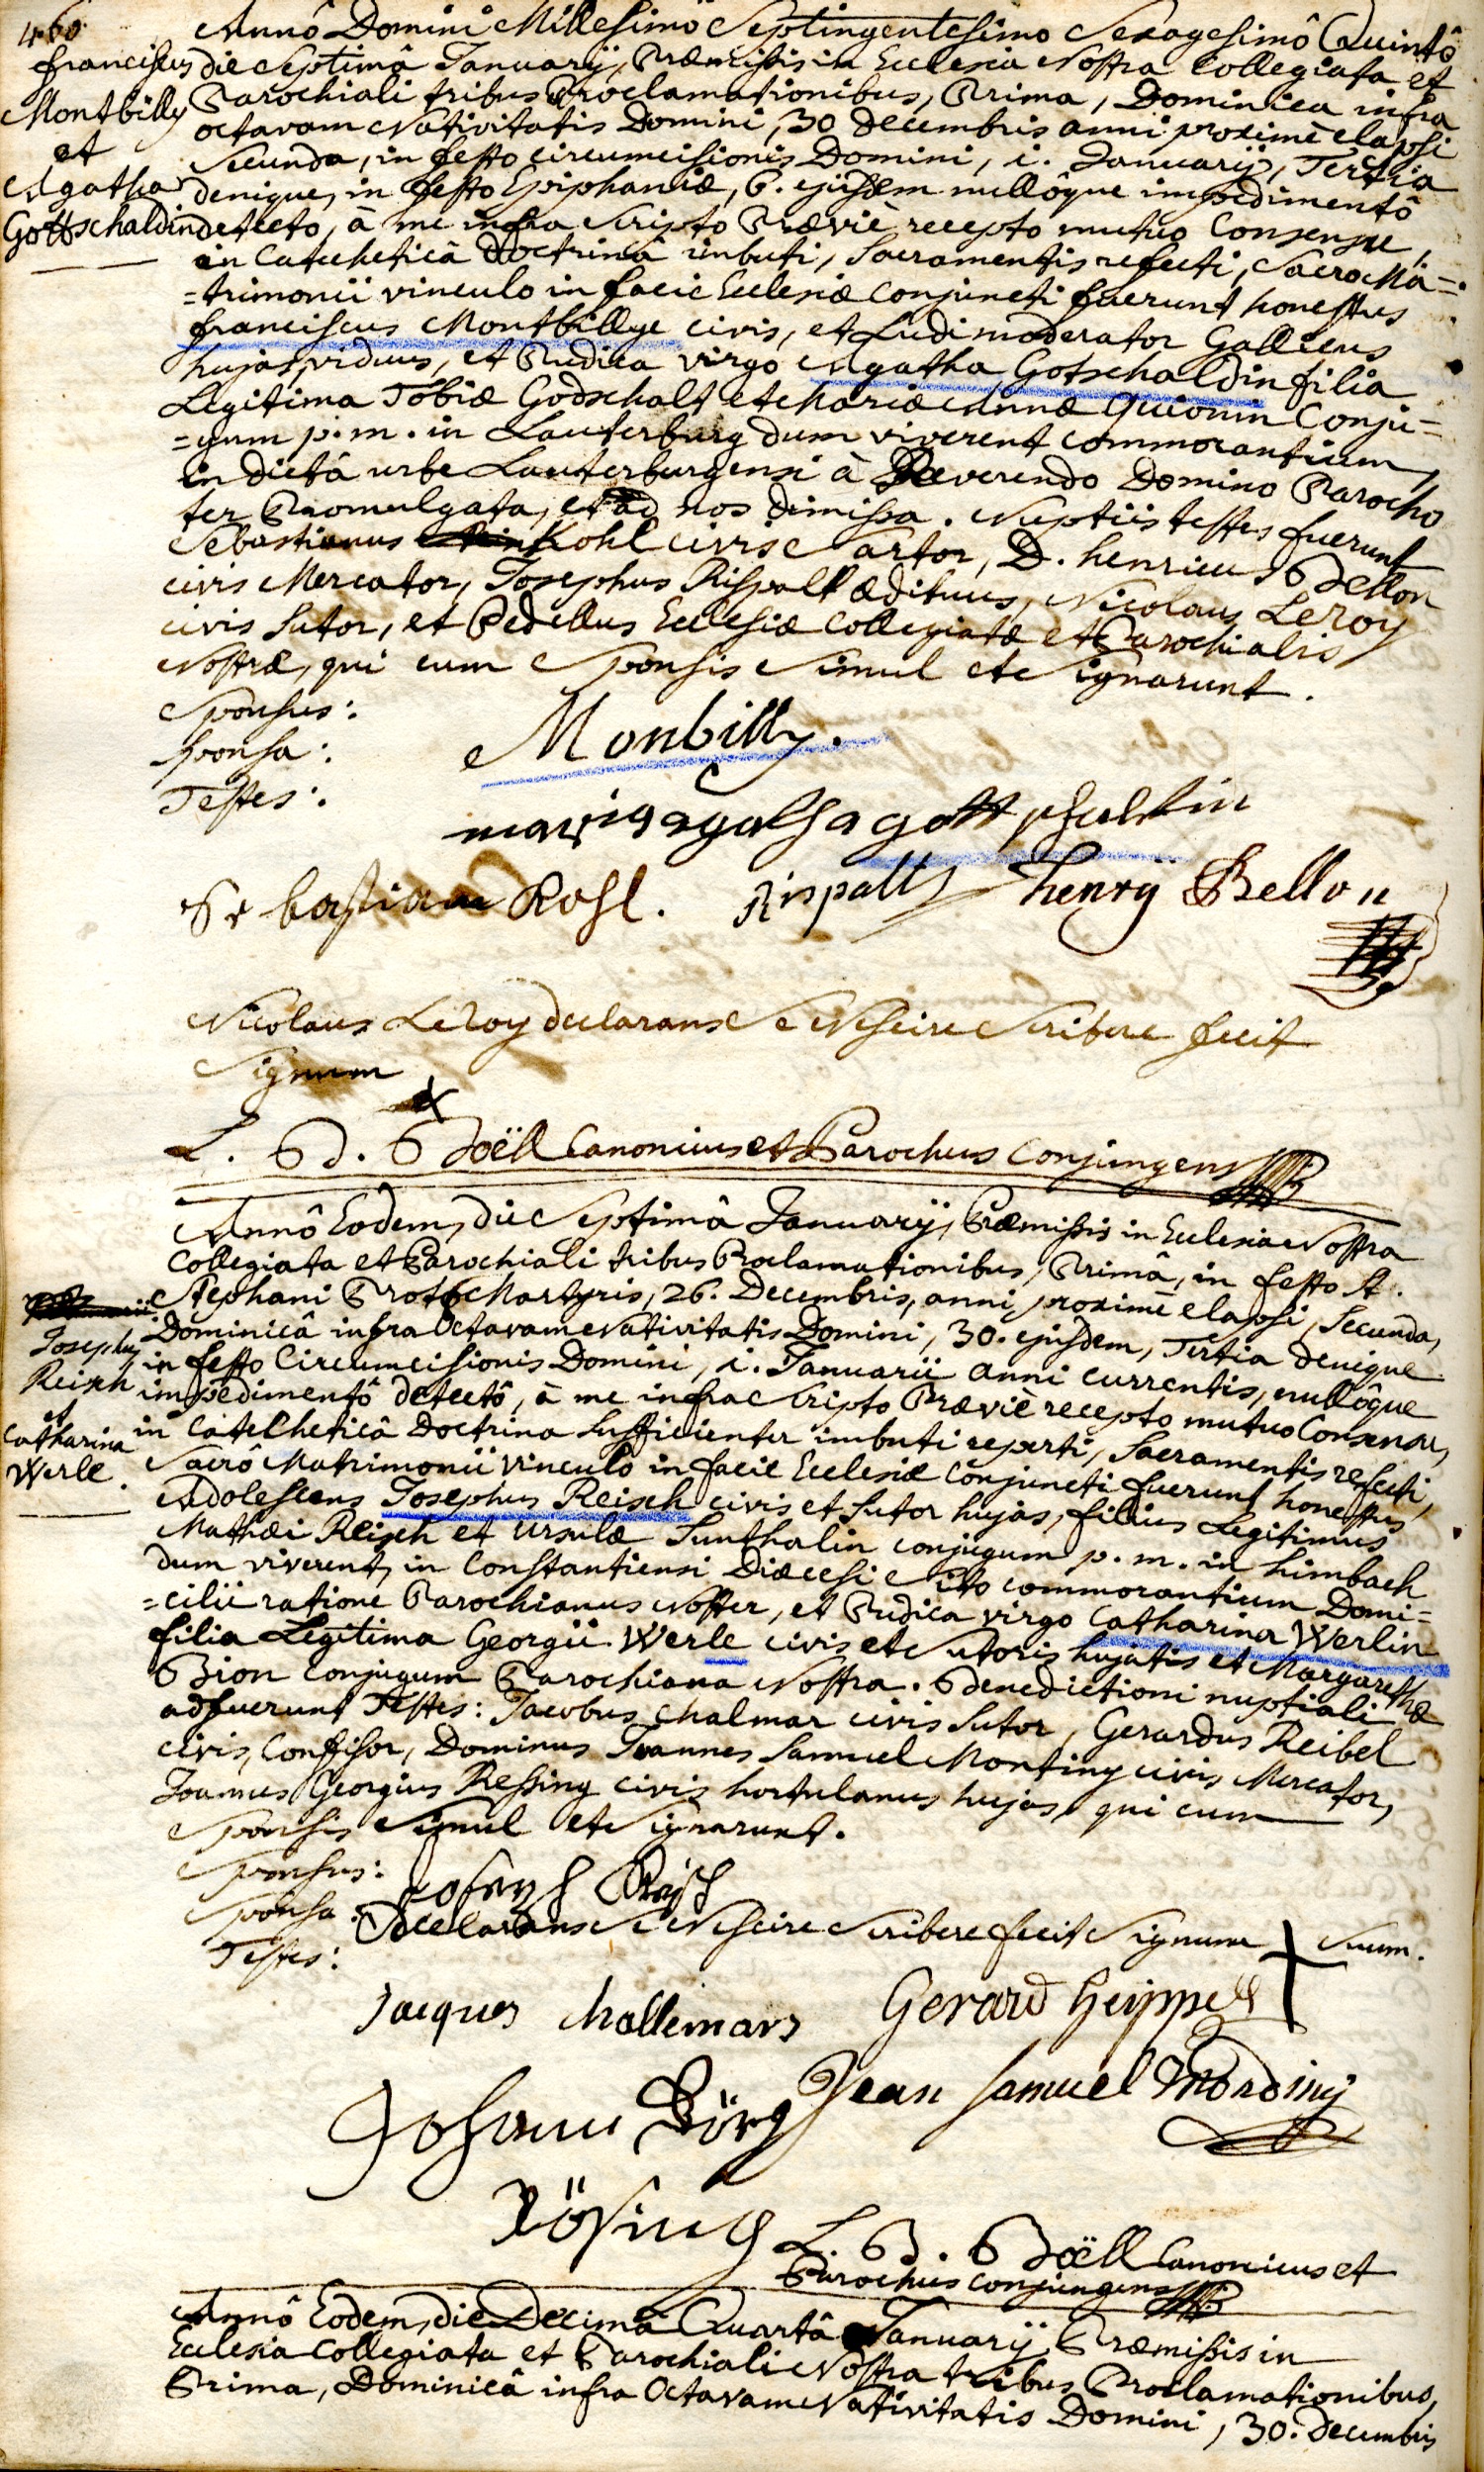 460.
Annô Domini Millesimô Septingentesimo Sexagesimô Quintô
franciscus die Septimâ Januarÿ, Præmissis in Ecclesia Nostra Collegiata et
Montbilly Parochiali tribus Proclamationibus, Prima, Dominica infra
octavam Nativitatis Domini, 30 Decembris anni proximè elapsi
et Secunda, in festo circumcisionis Domini, i. Januarÿ, Tertia
Agatha denique, in festo Epiphaniæ, 6. ejusdem nullôque impedimentô
Gottschaldin detecto, à me infra Scripto Præviè recepto mutuo Consensu,
in Catechetica doctrinâ imbuti, Sacramentis refecti, Sacro Ma=
=trimonii vinculo in facie Ecclesiæ Conjuncti fuerunt honestus
franciscus Montbillye civis, et Ludimoderator Gallicus
hujas, viduus, et Pudica virgo Agatha Gotschaldin filia
Legitima Tobiæ Godschalt et Mariæ Annæ Quionin Conju=
=gum p. m. in Lauterburg dum viverent commorantium
in dictâ urbe Lauterburgensi à Reverendo Domino Parocho
ter Promulgata, et ad nos dimissa. Nuptiis testes fuerunt
Sebastianus Kohl civis Sartor, D. henricus Bellon
civis Mercator, Josephus Rispalt ædituus, Nicolaus Leroy
civis Sutor, et Pedellus Ecclesiæ Collegiatæ et Parochialis
Nostræ, qui cum Sponsis Simul et Signarunt.
Sponsus: Monbilly.
Sponsa: maria agatha gottschaldin
Testes:
Sebastian Kohl. Rispalt henrÿ Bellon
Nicolaus Leroy declarans Se Nescire Scribere fecit
Signum
x
L. B. Boëll Canonicus et Parochus Conjungens
Annô Eodem, die Septimâ Januarÿ, Præmissis in Ecclesia Nostra
Collegiata et Parochiali tribus Proclamationibus, Primâ, in festo St.
Stephani Proto Martyris, 26. Decembris, anni proximè elapsi, Secunda,
Josephus Dominicâ infra Octavam Nativitatis Domini, 30. ejusdem, Tertia denique
Reisch in festo Circumcisionis Domini, i. Januarii anni currentis, nullôque
et impedimentô detectô, à me infra Scripto Præviè recepto mutuo Consensu,
Catharina in Catechetica Doctrina Sufficienter imbuti reperti, Sacramentis refecti,
Werle. Sacrô Matrimonii Vinculo in facie Ecclesiæ Conjuncti fuerunt honestus
Adolescens Josephus Reisch civis et Sutor hujas, filius Legitimus
Mathæi Reisch et Ursulæ Sunthalin conjugum p. m. in himbach
dum viverent, in Constantiensi Diœcesi Sito commorantium Domi=
=cilii ratione Parochianus Noster, et Pudica virgo Catharina Werlin
filia Legitima Georgii Werle civis et Sutoris hujatis et Margarethæ
Bion Conjugum Parochiana Nostra. Benedictioni nuptiali
adfuerunt Testes: Jacobus Chalmar civis Sutor, Gerardus Reibel
civis, Confisor, Dominus Joannes Samuel Montiny civis Mercator,
Joannes Georgius Ressing civis hortulanus hujas, qui cum
Sponsis Simul et Signarunt.
Sponsus: Joseph Reisch
Sponsa: Declarans Se Nescire Scribere fecit Signum + Suum.
Testes:
Jacques challemars Gerard heippell
Johann Görg Jean Samuel Mordiny
Rösing
L. B. Boëll Canonicus et
Parochus conjungens
Annô Eodem, die Decimâ Quartâ Januarÿ, Præmissis in
Ecclesia Collegiata et Parochiali Nostra tribus Proclamationibus,
Prima, Dominicâ infra Octavam Nativitatis Domini, 30. Decembris